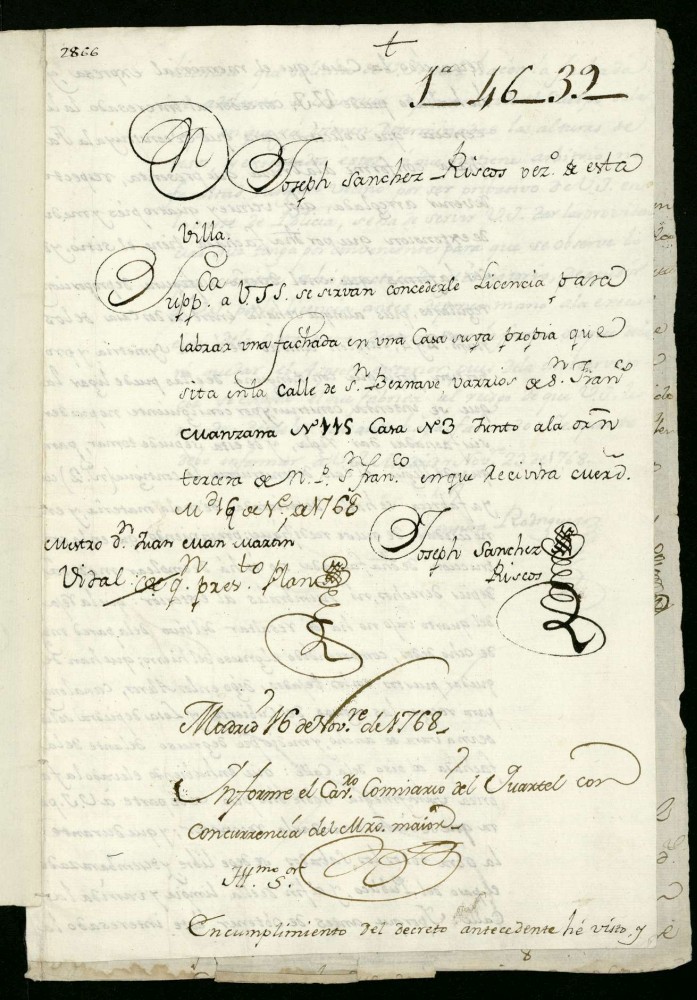 2866
1ª 46-32
Joseph Sanchez Riscos vezº. de esta
Villa.
Suppca a V.S.S. se sirvan concederle Licencia para
labrar una fachada en una Casa suya propia que
sita en la Calle de Sn. Bernave varrios de Sn. Franco
Manzana No 115 Casa No 3 Junto ala orñ
tercera de N. P. Sn. franco. en que Recivira merd.
Md 16 de Ne. de 1768
Mestro dn. Juan Man Martin
Vidal qn. presto Plan
Joseph Sanchez
Riscos
Madrid 16 de Novre de 1768
Informe el Cavro. Comisario del Quartel con
Concurrencia del Mro. maior
Illmo Sor
En cumplimiento del decreto antecedente hé visto, y
8